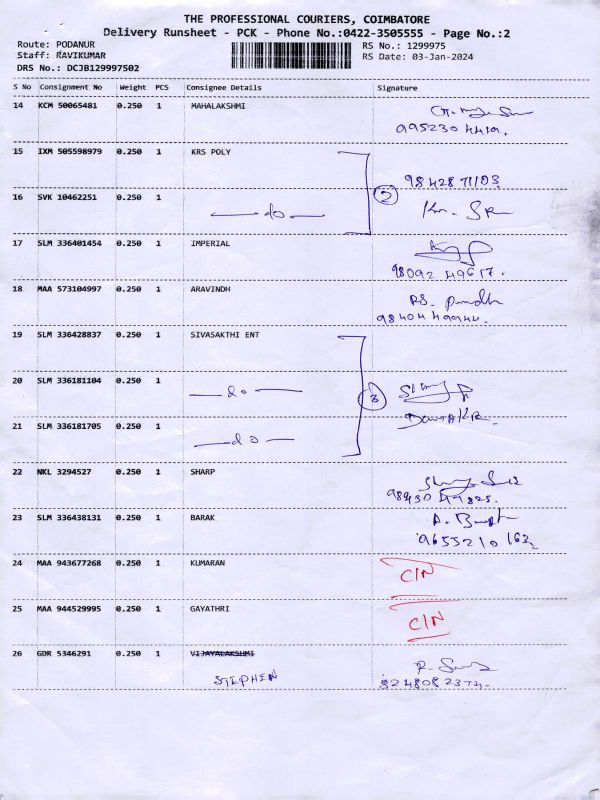 THE PROFESSIONAL COURIERS, COIMBATORE
Delivery Runsheet - PCK - Phone No.:0422-3505555 - Page No.:2
Route: PODANUR
RS No.: 1299975
Staff: RAVIKUMAR
RS Date: 03-Jan-2024
DRS No.: DCJB129997502
S No Consignment No Weight PCS Consignee Details Signature
14 KCM 50065481 0.250 1 MAHALAKSHMI
15 IXM 505598979 0.250 1 KRS POLY
16 SVK 10462251 0.250 1 —do— 2
17 SLM 336401454 0.250 1 IMPERIAL
18 MAA 573104997 0.250 1 ARAVINDH
19 SLM 336428837 0.250 1 SIVASAKTHI ENT
20 SLM 336181104 0.250 1 —do— 3
21 SLM 336181705 0.250 1 —do—
22 NKL 3294527 0.250 1 SHARP
23 SLM 336438131 0.250 1 BARAK
24 MAA 943677268 0.250 1 KUMARAN C/N
25 MAA 944529995 0.250 1 GAYATHRI C/N
26 GDR 5346291 0.250 1 VIJAYALAKSHMI
STEPHEN